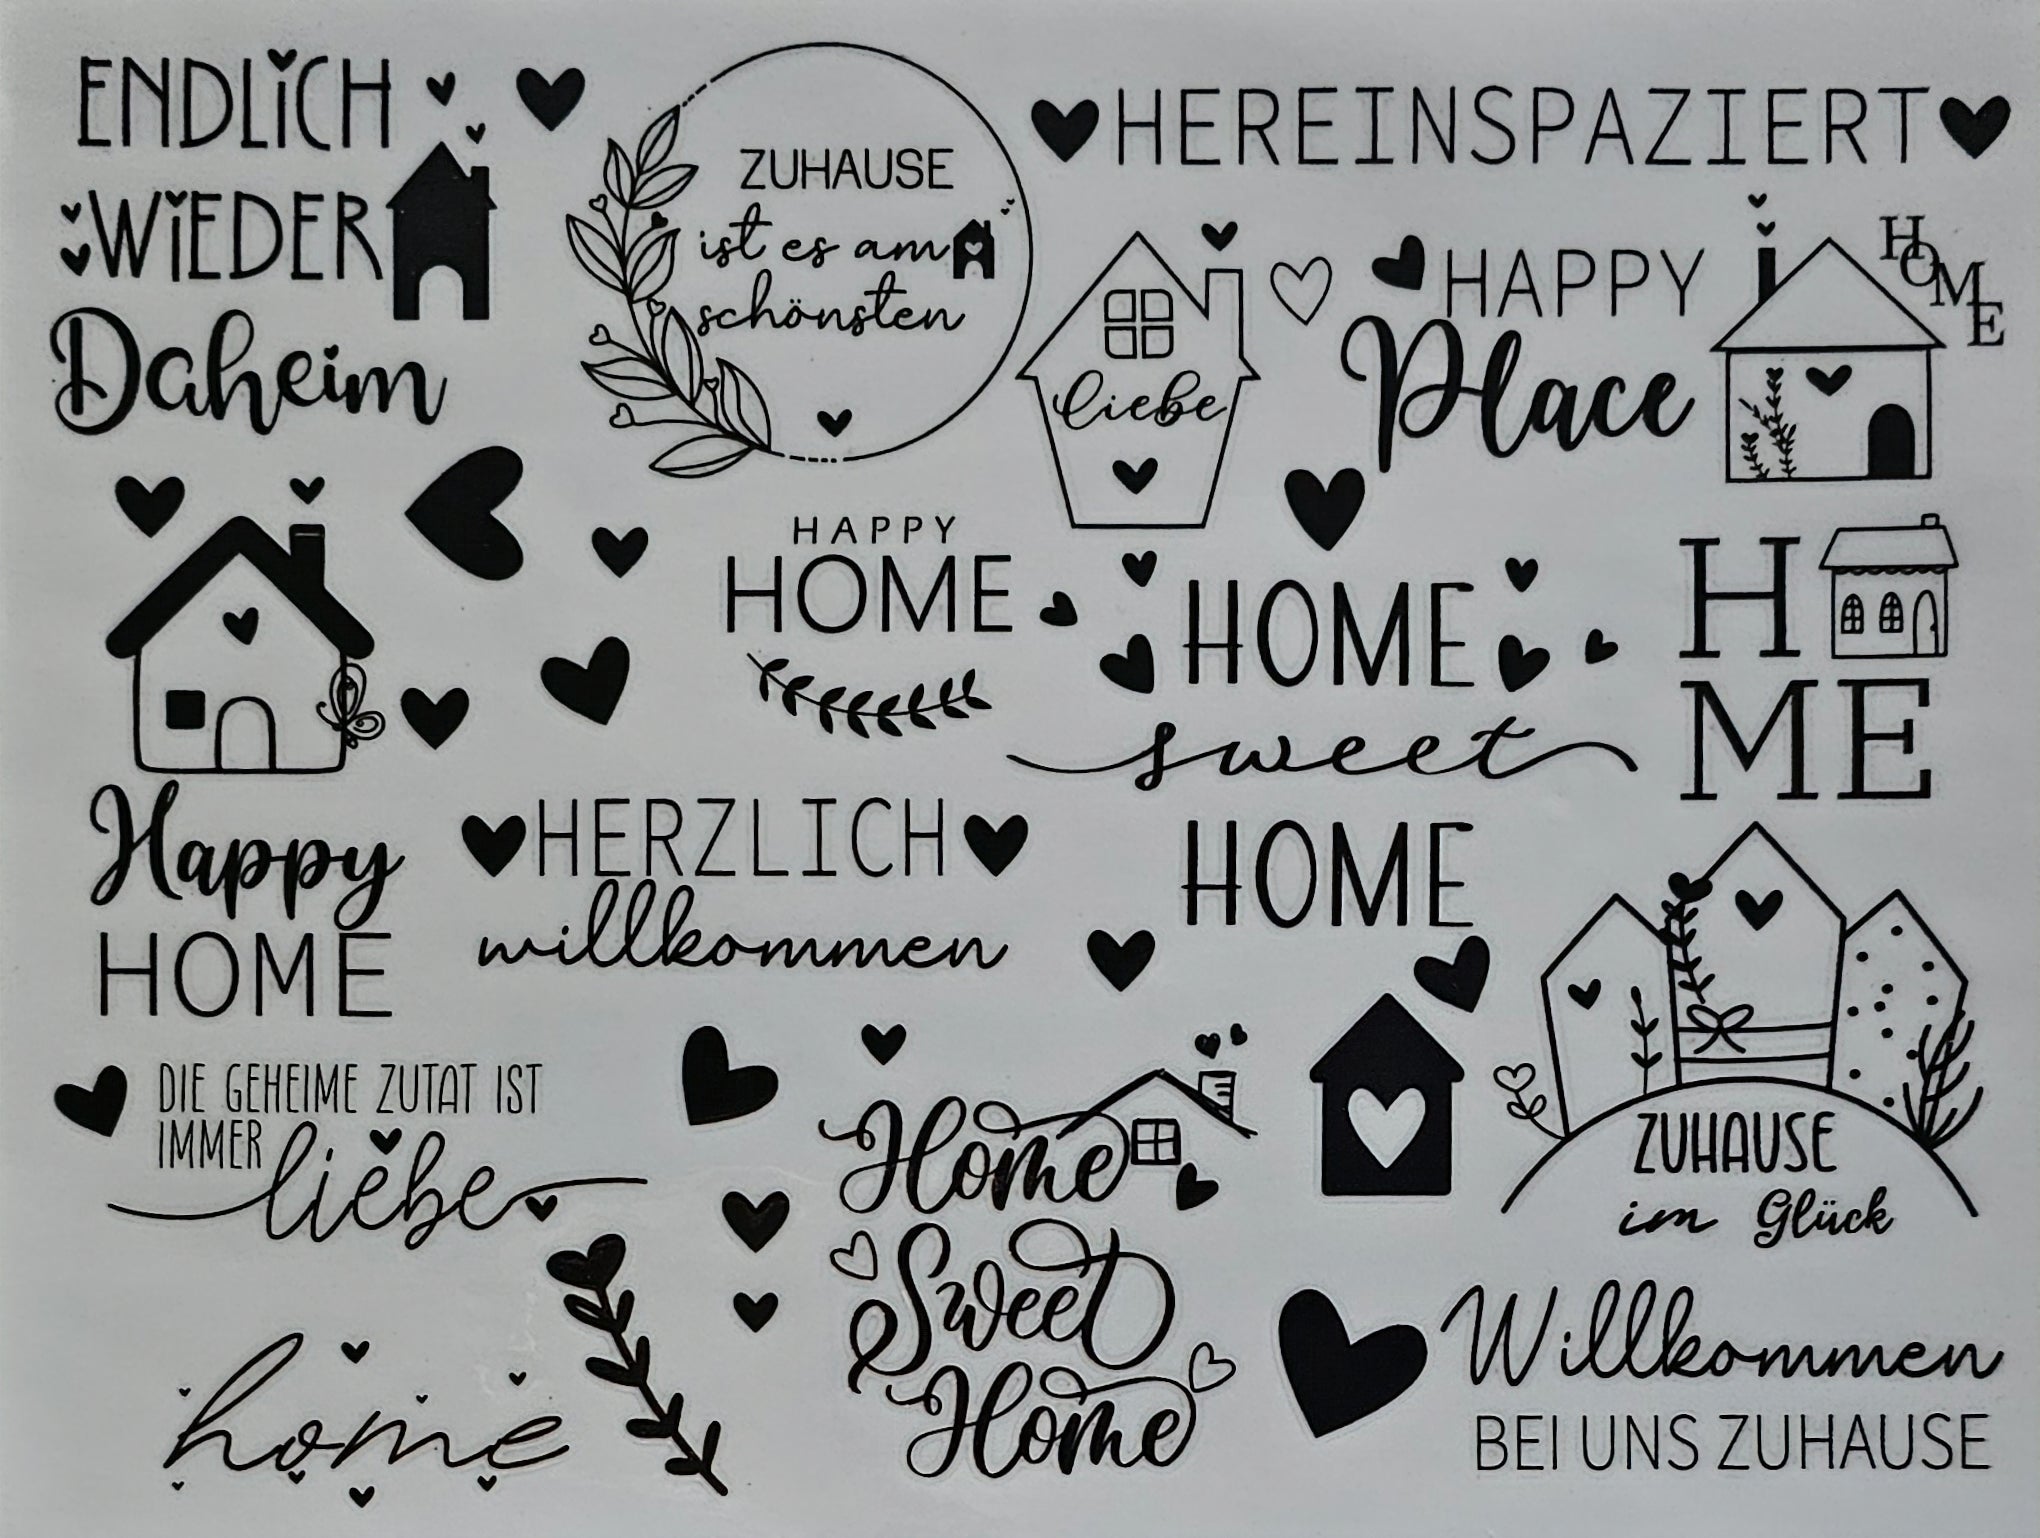 ENDLiCH
WiEDER
Daheim
ZUHAUSE
ist es am
schönsten
HEREINSPAZIERT
liebe
HAPPY
Place
HOME
HAPPY
HOME
HOME
sweet
HOME
H
ME
Happy
HOME
HERZLICH
willkommen
DIE GEHEIME ZUTAT IST
IMMER liebe
home
Home
Sweet
Home
ZUHAUSE
im Glück
Willkommen
BEI UNS ZUHAUSE